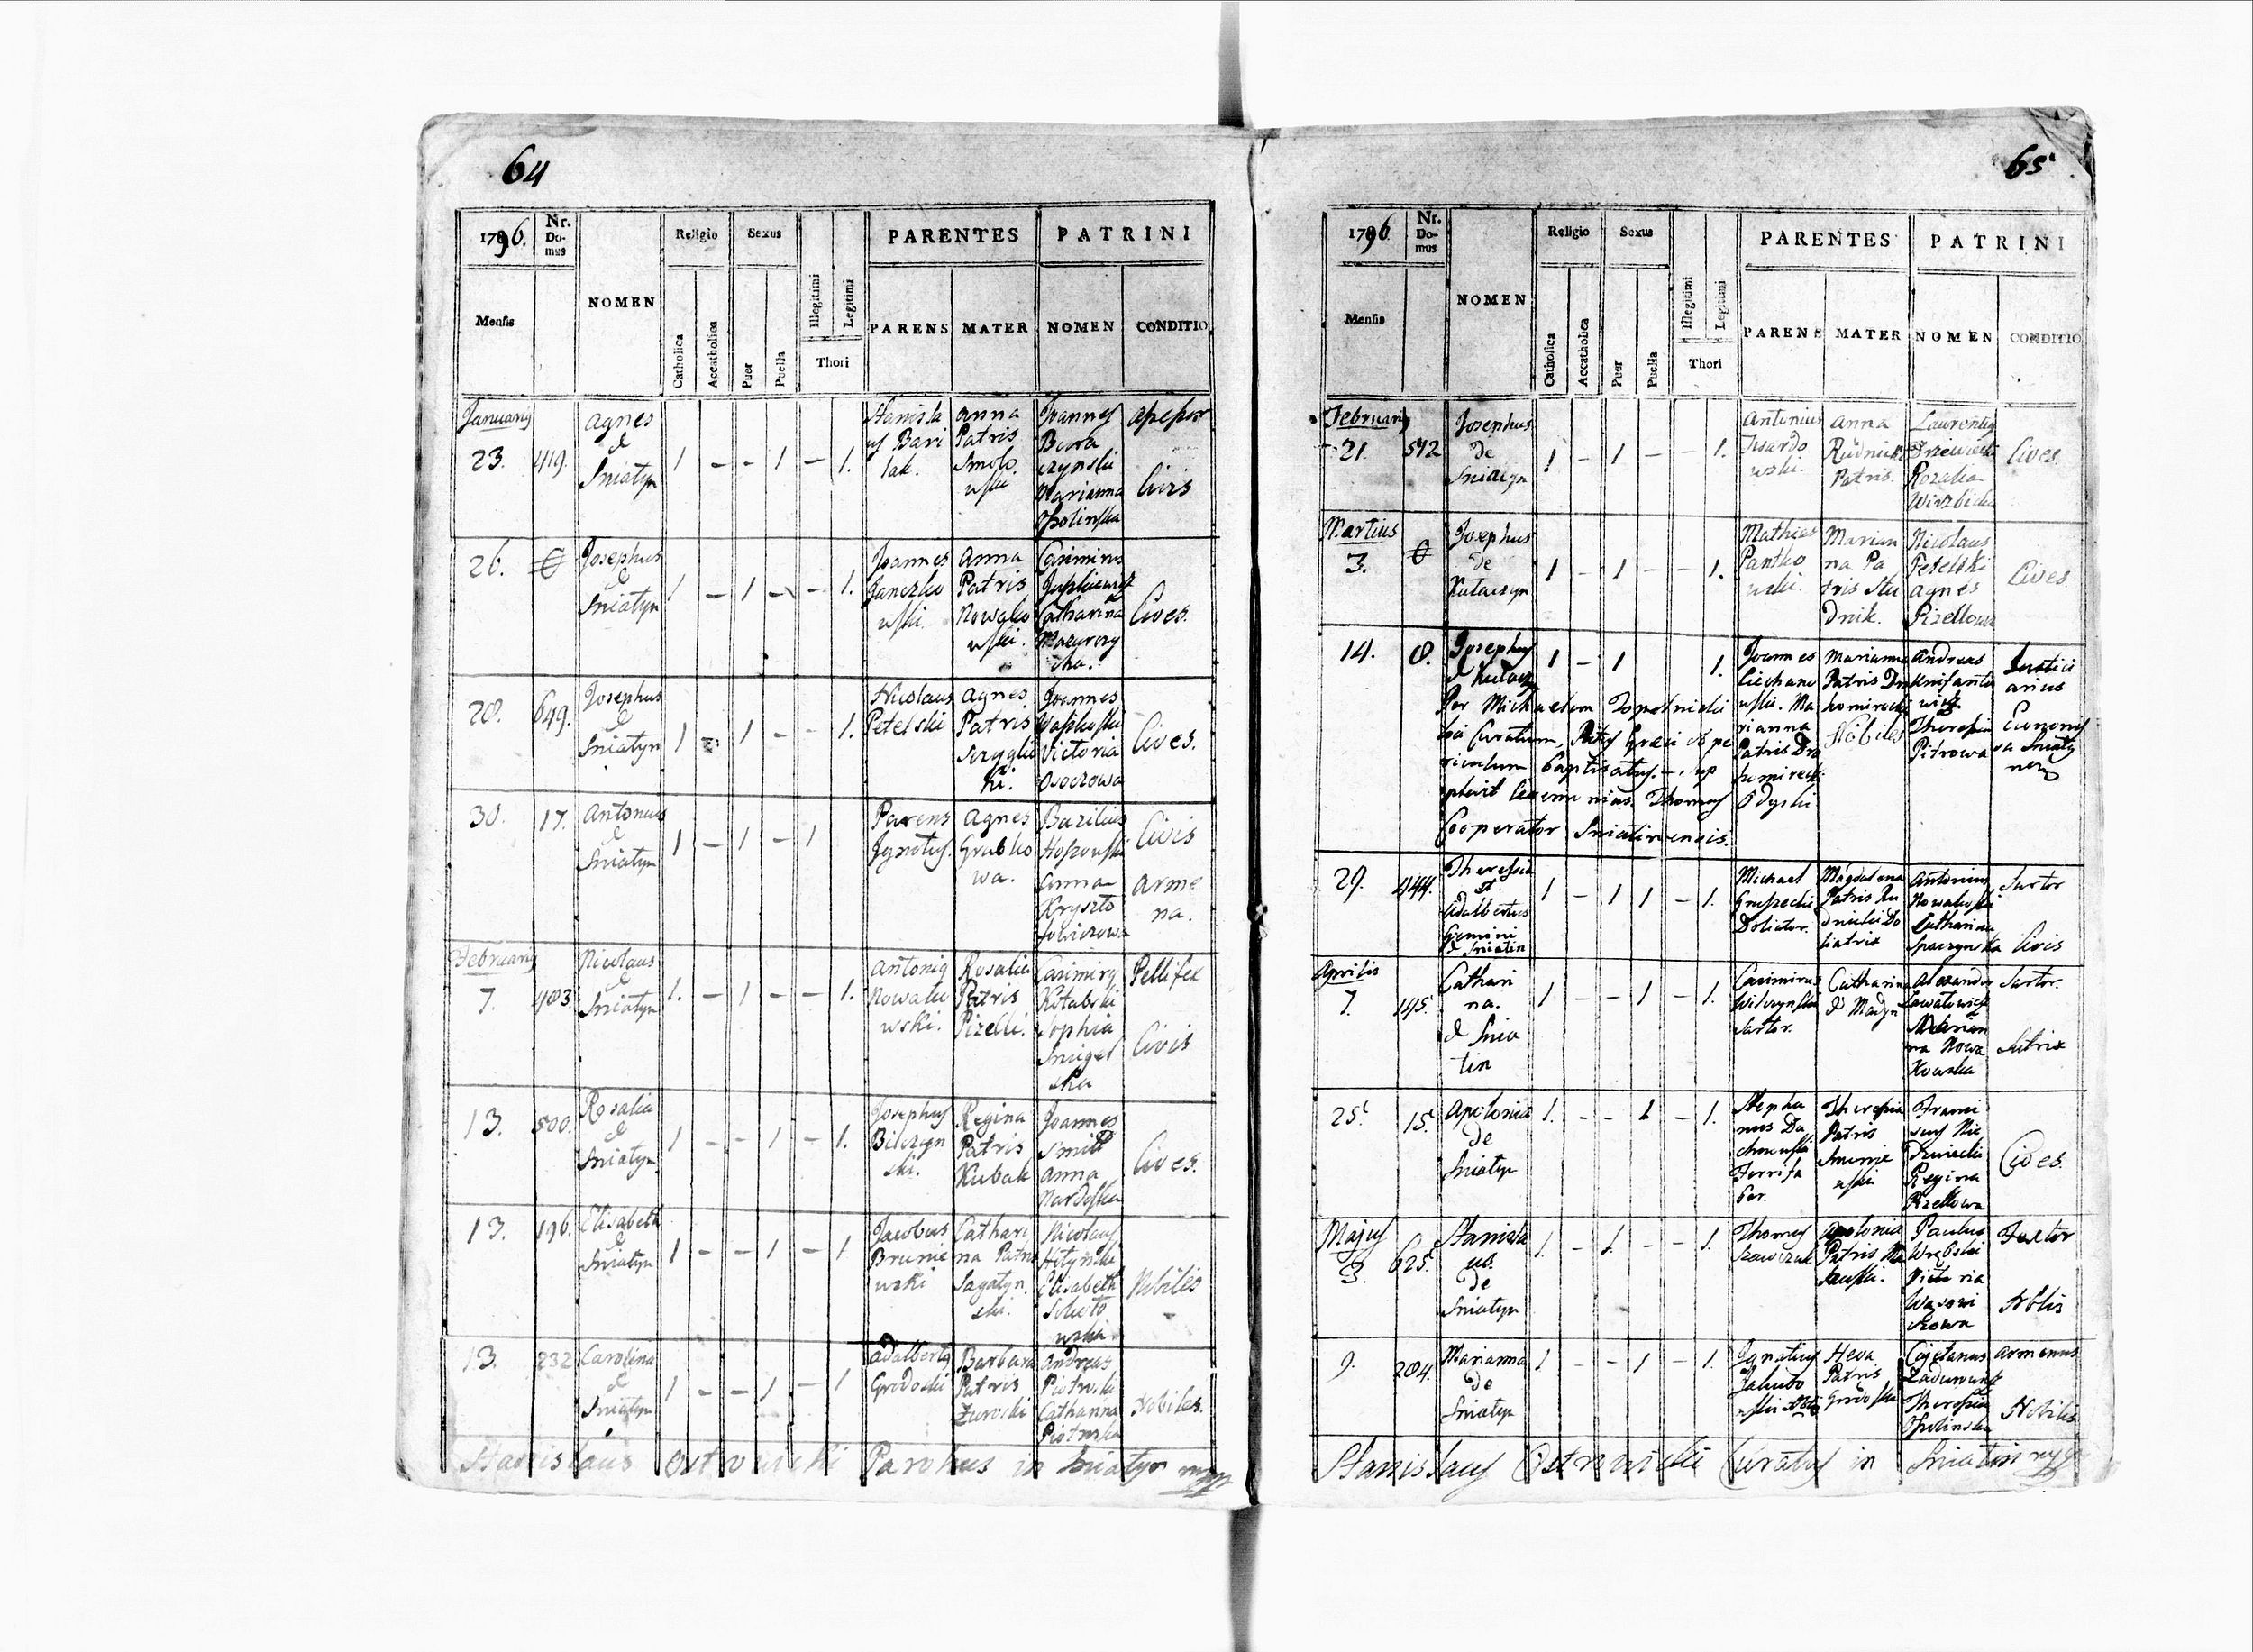 64
1796.
Nr. Do- mus
NOMEN
Religio
Sexus
PARENTES
PATRINI
Mensis
Catholica
Accatholica
Puer
Puella
Illegitimi
Legitimi
Thori
PARENS
MATER
NOMEN
CONDITIO
Januarij
23.
419.
agnes
d
Sniatyn
1 - - 1 - 1.
Stanisla
us Bari
lak.
anna
Patris
Smolo
wski
Joannes
Bura
czynski
Marianna
Opolinska
Civis
26.
Josephus
d
Sniatyn
1 - 1 - - 1.
Joannes
Janczko
wski.
Anna
Patris
Nowako
wski.
Casimirus
Catharina
Mazurozy
Cives.
28.
649.
Josephus
d
Sniatyn
1 - 1 - - 1.
Nicolaus
Petelski
Agnes
Patris
Szyglic
ki.
Joannes
Victoria
Osoczowa
Cives.
30.
17.
Antonius
d
Sniatyn
1 - 1 - 1
Parens
Ignotus.
Agnes
Grubko
wa.
Bazilius
Hoszowski
Anna
Kryszto
fowiczowa
Civis
Arme
na.
Februarij
7.
403.
Nicolaus
d
Sniatyn
1. - 1 - - 1.
Antonig
Nowako
wski.
Rosalia
Patris
Pizelli.
Casimirg
Kitabski
Sophia
Snigel
ska
Pellifex
Civis
13.
500.
Rosalia
d
Sniatyn.
1 - - 1 - 1.
Josephus
Bilczyn
ski.
Regina
Patris
Kubak
Joannes
Smitt
Anna
Nardoska
Cives.
13.
196.
Elisabeth
d
Sniatyn
1 - - 1 - 1
Jacobus
Brunie
wski
Cathari
na Patris
Sagatyn
ski.
Nicolaus
Hitynski
Elisabeth
Nobiles
13.
232
Carolina
d
Sniatyn
1 - - 1 - 1
Adalbertg
Grodoski
Barbara
Patris
Zurocki
Andreas
Piotroski
Catharina
Piotroska
Nobiles.
Stanislaus Ostrowicki Parohus in Sniatyn mpp
65
1796.
Nr. Do- mus
NOMEN
Religio
Sexus
PARENTES
PATRINI
Mensis
Catholica
Accatholica
Puer
Puella
Illegitimi
Legitimi
Thori
PARENS
MATER
NOMEN
CONDITIO
Februarij
21.
592
Josephus
de
Sniatyn
1 - 1 - - 1.
Antonius
Twardo
wski.
Anna
Rudnicki
Patris.
Laurentig
Rozalia
Wirzbicka
Cives.
Martius
3.
Josephus
de
Kulaczyn
1 - 1 - - 1.
Mathias
Pantko
wski.
Marian
na Pa
tris Stu
dnik.
Nicolaus
Petelski
Agnes
Pizellowa
Cives.
14.
0.
Josephus
1 - 1 1.
Joannes
Ciechano
wski. Ma
rianna
Patris Dro
homirecki
Odyski
Marianna
Patris Dro
homirecki
Nobiles
Andreas
Theresia
Pitrowa
Justici
arius
Per Michaelem
loci Curatum, Ritus Graeci ob pe
riculum Baptisatus. - sup
plevit Ceremonias Thomas
Cooperator Sniatinensis.
29.
444.
Theresia
et
Adalbertus
Gemini
d Sniatin
1 - 1 1 - 1.
Michael
Doliator.
Magdalena
Patris Ru
dnicki Do
liatrix
Antonius
Nowakoski
Catharina
Spaczynska
Sartor
Civis
Aprilis
7.
145.
Cathari
na.
d Snia
tin
1. - - 1 - 1.
Casimirus
Wilczynski
Sartor.
Catharina
d Madyn
Alexander
Marian
na Nowa
kowska
Sartor.
Sutrix
25.
15.
Apolonia
de
Sniatyn
1. - - 1 - 1.
Stepha
nus Da
chnowski
Ferrifa
ber.
Theresia
Patris
Sminie
wski
Franci
scus Nie
Dzwiecki
Regina
Pizellowa
Cives.
Majus
3.
625.
Stanisla
us.
de
Sniatyn
1. - 1. - - 1.
Thomas
Szawczuk
Apolonia
Patris
Paulus
Wrebski
Victoria
Wasowi
czowa
Textor
Nblis
9.
204.
Marianna
de
Sniatyn
1 - - 1 - 1.
Ignatius
Jakubo
wski
Heva
Patris
Grodoski
Cajetanus
Theresia
Opolinska
Armenus
Nobilis
Stanislaus Ostrowicki Curatus in Sniatin mpp